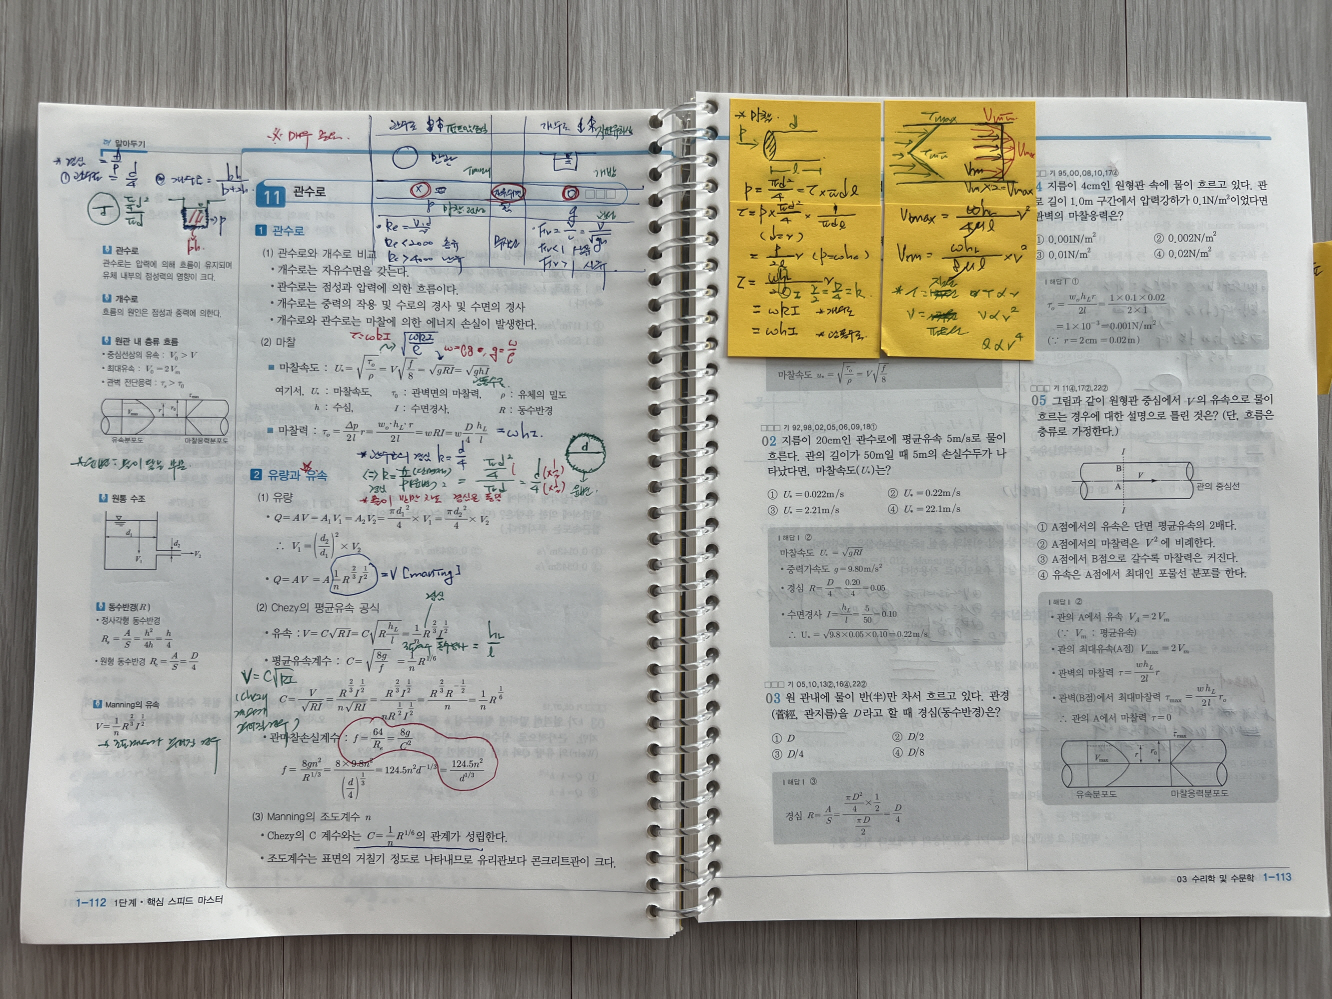 알아두기
* 경심
① 관수로 = A/P = d/4
② 개수로 = bh/b+2h
관수로
관수로는 압력에 의해 흐름이 유지되며
유체 내부의 점성력의 영향이 크다.
개수로
흐름의 원인은 점성과 중력에 의한다.
원관 내 층류 흐름
• 중심선상의 유속 : V₀ > V
• 최대유속 : V₀ = 2Vₘ
• 관벽 전단응력 : τₛ > τ₀
유속분포도 마찰응력분포도
원통 수조
동수반경(R)
• 정사각형 동수반경
Rₛ = A/S = h²/4h = h/4
• 원형 동수반경 Rₛ = A/S = D/4
Manning의 유속
V = 1/n R^(2/3) I^(1/2)
※ 매우 중요
11 관수로
1 관수로
(1) 관수로와 개수로 비교
• 개수로는 자유수면을 갖는다.
• 관수로는 점성과 압력에 의한 흐름이다.
• 개수로는 중력의 작용 및 수로의 경사 및 수면의 경사
• 개수로와 관수로는 마찰에 의한 에너지 손실이 발생한다.
(2) 마찰
τ = wRI
■ 마찰속도 : U* = √(τ₀/ρ) = V√(f/8) = √(gRI) = √(ghI)
여기서, U* : 마찰속도, τ₀ : 관벽면의 마찰력, ρ : 유체의 밀도
h : 수심, I : 수면경사, R : 동수반경
■ 마찰력 : τ₀ = Δp/2l r = w₀·h_L·r/2l = wRI = w D/4 h_L/l = whI.
2 유량과 유속
(1) 유량
• Q = AV = A₁V₁ = A₂V₂ = πd₁²/4 × V₁ = πd₂²/4 × V₂
∴ V₁ = (d₂/d₁)² × V₂
• Q = AV = A 1/n R^(2/3) I^(1/2) = V [maning]
(2) Chezy의 평균유속 공식
• 유속 : V = C√(RI) = C√(R h_L/l) = 1/n R^(2/3) I^(1/2)
• 평균유속계수 : C = √(8g/f) = 1/n R^(1/6)
V = C√RI
C = V/√(RI) = R^(2/3) I^(1/2)/n√(RI) = R^(2/3) I^(1/2)/nR^(1/2) I^(1/2) = R^(2/3) R^(-1/2)/n = 1/n R^(1/6)
• 관마찰손실계수 : f = 64/Rₑ = 8g/C²
f = 8gn²/R^(1/3) = 8×9.8n²/(d/4)^(1/3) = 124.5n²d^(-1/3) = 124.5n²/d^(1/3)
(3) Manning의 조도계수 n
• Chezy의 C 계수와는 C = 1/n R^(1/6)의 관계가 성립한다.
• 조도계수는 표면의 거칠기 정도로 나타내므로 유리관보다 콘크리트관이 크다.
1-112 1단계 • 핵심 스피드 마스터
* 마찰.
P = πd²/4 = τ × πdl
τ = P × πd²/4 × 1/πdl
(d=r)
= P/2l r (P=whₗ)
= wRI * 개수로
= whI
V₀max = whₗ/4μl r²
Vm = whₗ/8μl × r²
마찰속도 u* = √(τ₀/ρ) = V√(f/8)
□□□ 기 92,98,02,05,06,09,18①
02 지름이 20cm인 관수로에 평균유속 5m/s로 물이
흐른다. 관의 길이가 50m일 때 5m의 손실수두가 나
타났다면, 마찰속도(U*)는?
① U* = 0.022m/s ② U* = 0.22m/s
③ U* = 2.21m/s ④ U* = 22.1m/s
| 해답 | ②
마찰속도 U* = √(gRI)
• 중력가속도 g = 9.80m/s²
• 경심 R = D/4 = 0.20/4 = 0.05
• 수면경사 I = h_L/l = 5/50 = 0.10
∴ U* = √(9.8×0.05×0.10) = 0.22m/s
□□□ 기 05,10,13②,16④,22②
03 원 관내에 물이 반(半)만 차서 흐르고 있다. 관경
(菅經, 관지름)을 D라고 할 때 경심(동수반경)은?
① D ② D/2
③ D/4 ④ D/8
| 해답 | ③
경심 R = A/S = (πD²/4 × 1/2)/(πD/2) = D/4
기 95,00,08,10,17④
4 지름이 4cm인 원형관 속에 물이 흐르고 있다. 관
로 길이 1.0m 구간에서 압력강하가 0.1N/m²이었다면
관벽의 마찰응력은?
① 0.001N/m² ② 0.002N/m²
③ 0.01N/m² ④ 0.02N/m²
| 해답 | ①
τₒ = wₒh_L r/2l = 1×0.1×0.02/2×1
= 1×10⁻³ = 0.001N/m²
(∵ r = 2cm = 0.02m)
□□□ 기 11④,17②,22②
05 그림과 같이 원형관 중심에서 V의 유속으로 물이
흐르는 경우에 대한 설명으로 틀린 것은? (단, 흐름은
층류로 가정한다.)
B
A V
관의 중심선
① A점에서의 유속은 단면 평균유속의 2배다.
② A점에서의 마찰력은 V²에 비례한다.
③ A점에서 B점으로 갈수록 마찰력은 커진다.
④ 유속은 A점에서 최대인 포물선 분포를 한다.
| 해답 | ②
• 관의 A에서 유속 V_A = 2Vₘ
(∵ Vₘ : 평균유속)
• 관의 최대유속(A점) Vmax = 2Vₘ
• 관벽의 마찰력 τ = wh_L/2l r
• 관벽(B점)에서 최대마찰력 τmax = wh_L/2l rₒ
∴ 관의 A에서 마찰력 τ = 0
유속분포도 마찰응력분포도
03 수리학 및 수문학 1-113